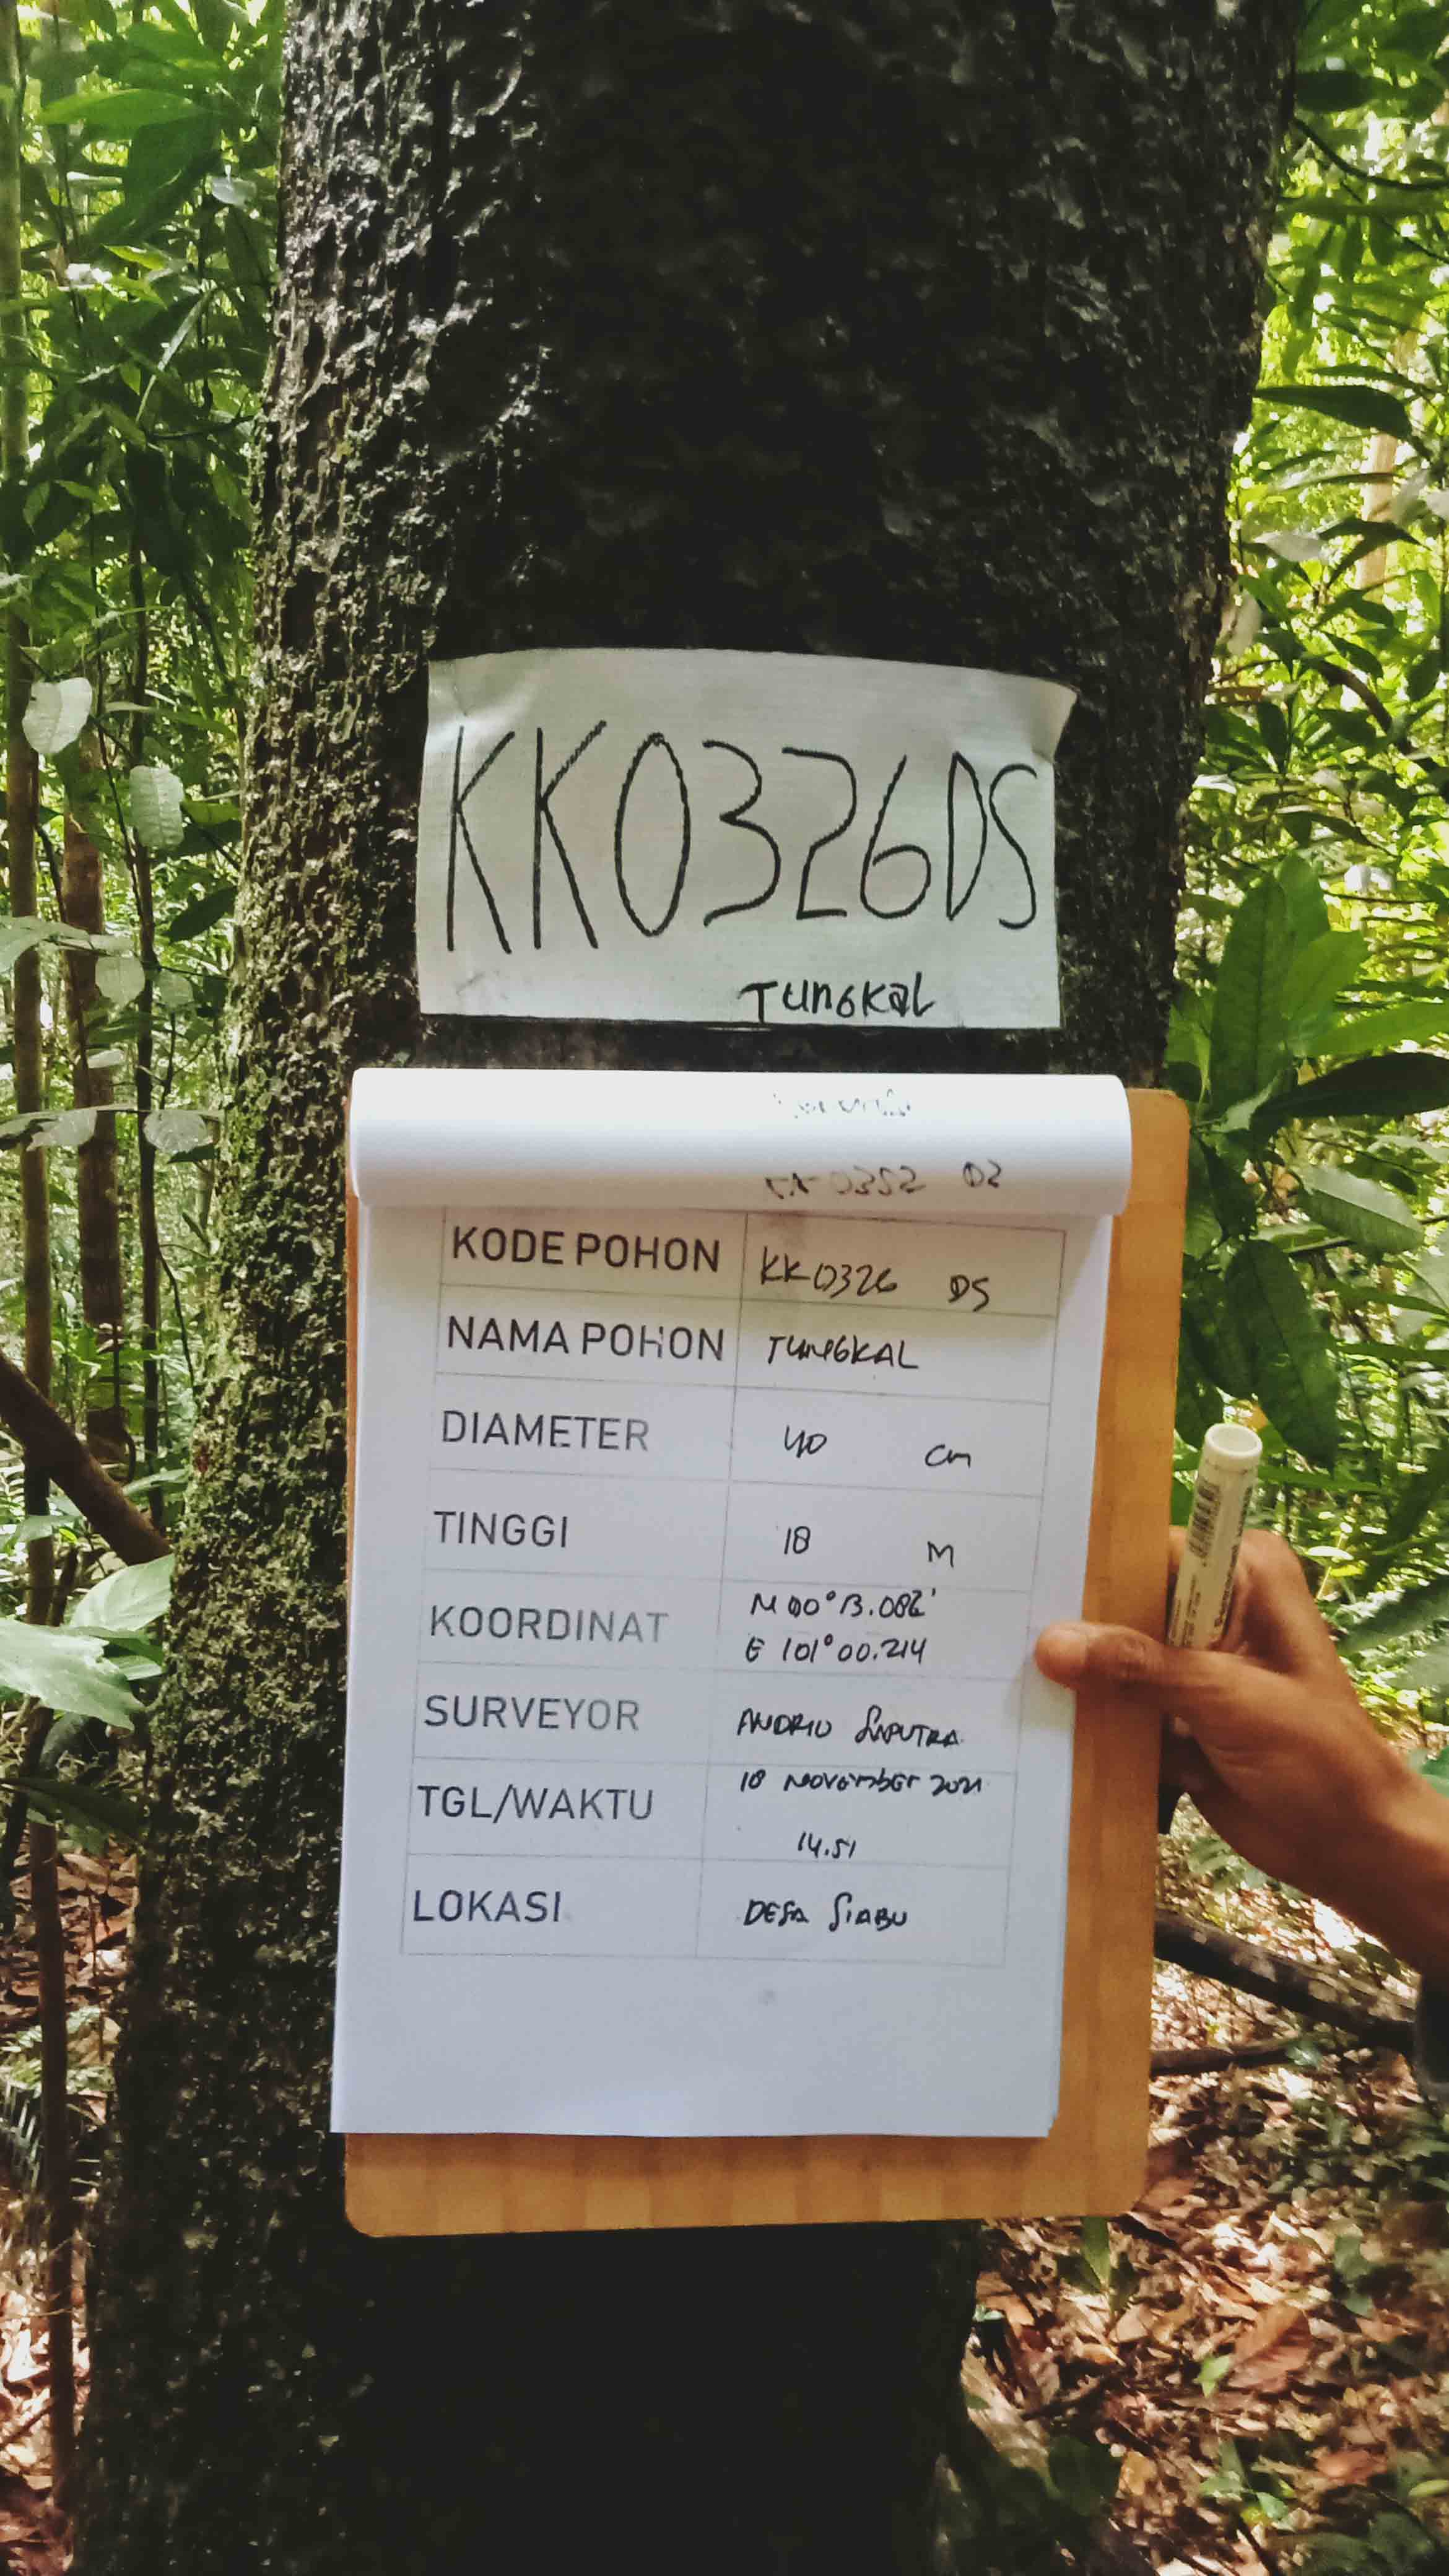 KK0326DS
TUNGKAL
KODE POHON KK0326 DS
NAMA POHON TUNGKAL
DIAMETER 40 cm
TINGGI 18 M
KOORDINAT N 00° 13.082'
E 101° 00.214
SURVEYOR ANDRIO SAPUTRA
TGL/WAKTU 18 NOVEMBER 2021
14.51
LOKASI DESA SIABU